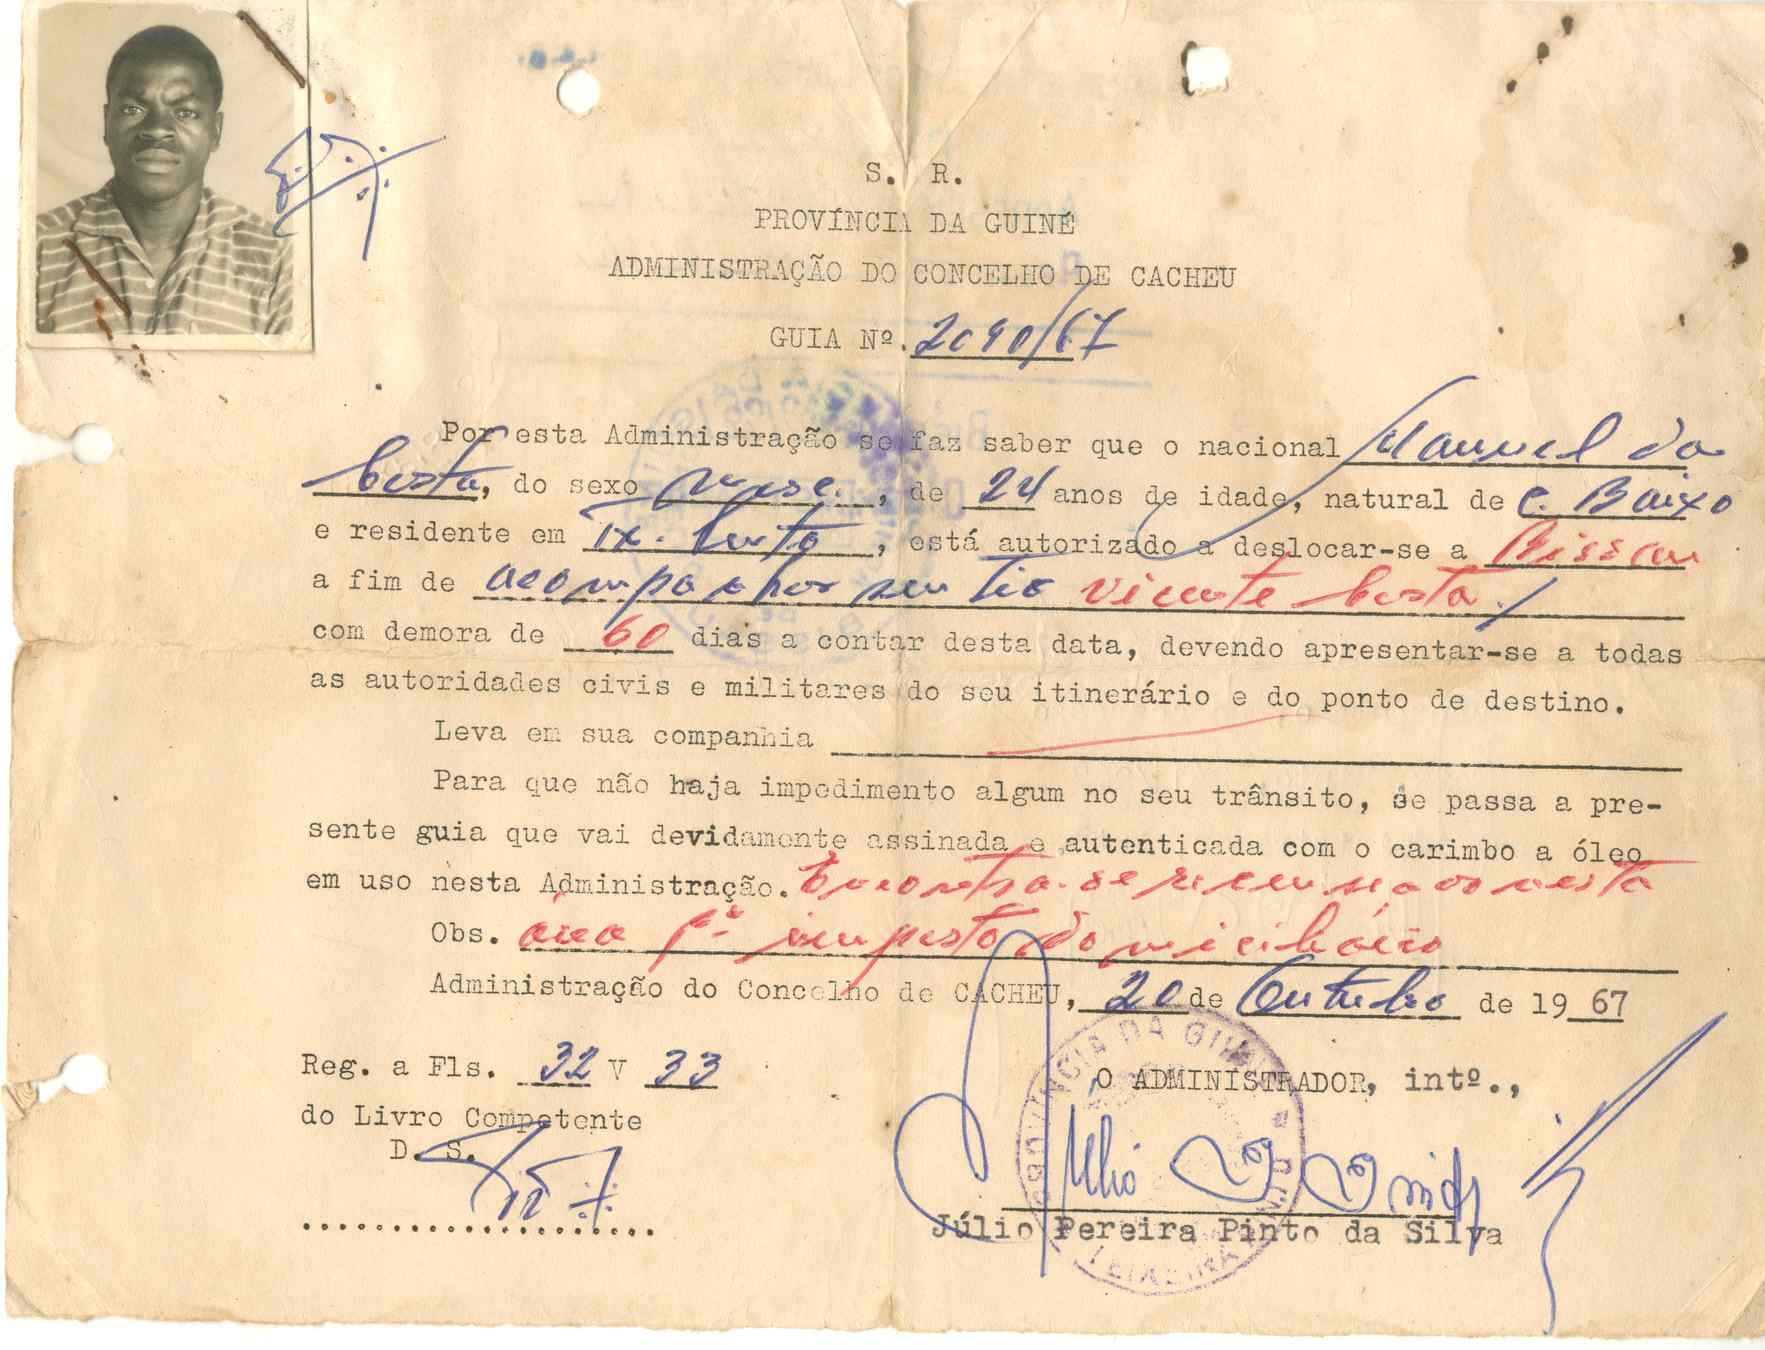 S. R.
PROVÍNCIA DA GUINÉ
ADMINISTRAÇÃO DO CONCELHO DE CACHEU
GUIA Nº. 2090/67
Por esta Administração se faz saber que o nacional Manuel da
Costa, do sexo masc., de 24 anos de idade, natural de C. Baixo
e residente em Tx. Pinto, está autorizado a deslocar-se a Bissau
a fim de acompanhar seu tio Vicente Costa./
com demora de 60 dias a contar desta data, devendo apresentar-se a todas
as autoridades civis e militares do seu itinerário e do ponto de destino.
Leva em sua companhia
Para que não haja impedimento algum no seu trânsito, se passa a pre-
sente guia que vai devidamente assinada e autenticada com o carimbo a óleo
em uso nesta Administração. Encontra-se recenseado nesta
Obs. área pª imposto domiciliário
Administração do Concelho de CACHEU, 20 de Outubro de 1967
Reg. a Fls. 32 V 33
O ADMINISTRADOR, intº.,
do Livro Competente
D. S.
Júlio Pereira Pinto da Silva
PROVÍNCIA DA GUINÉ
TEIXEIRA PINTO